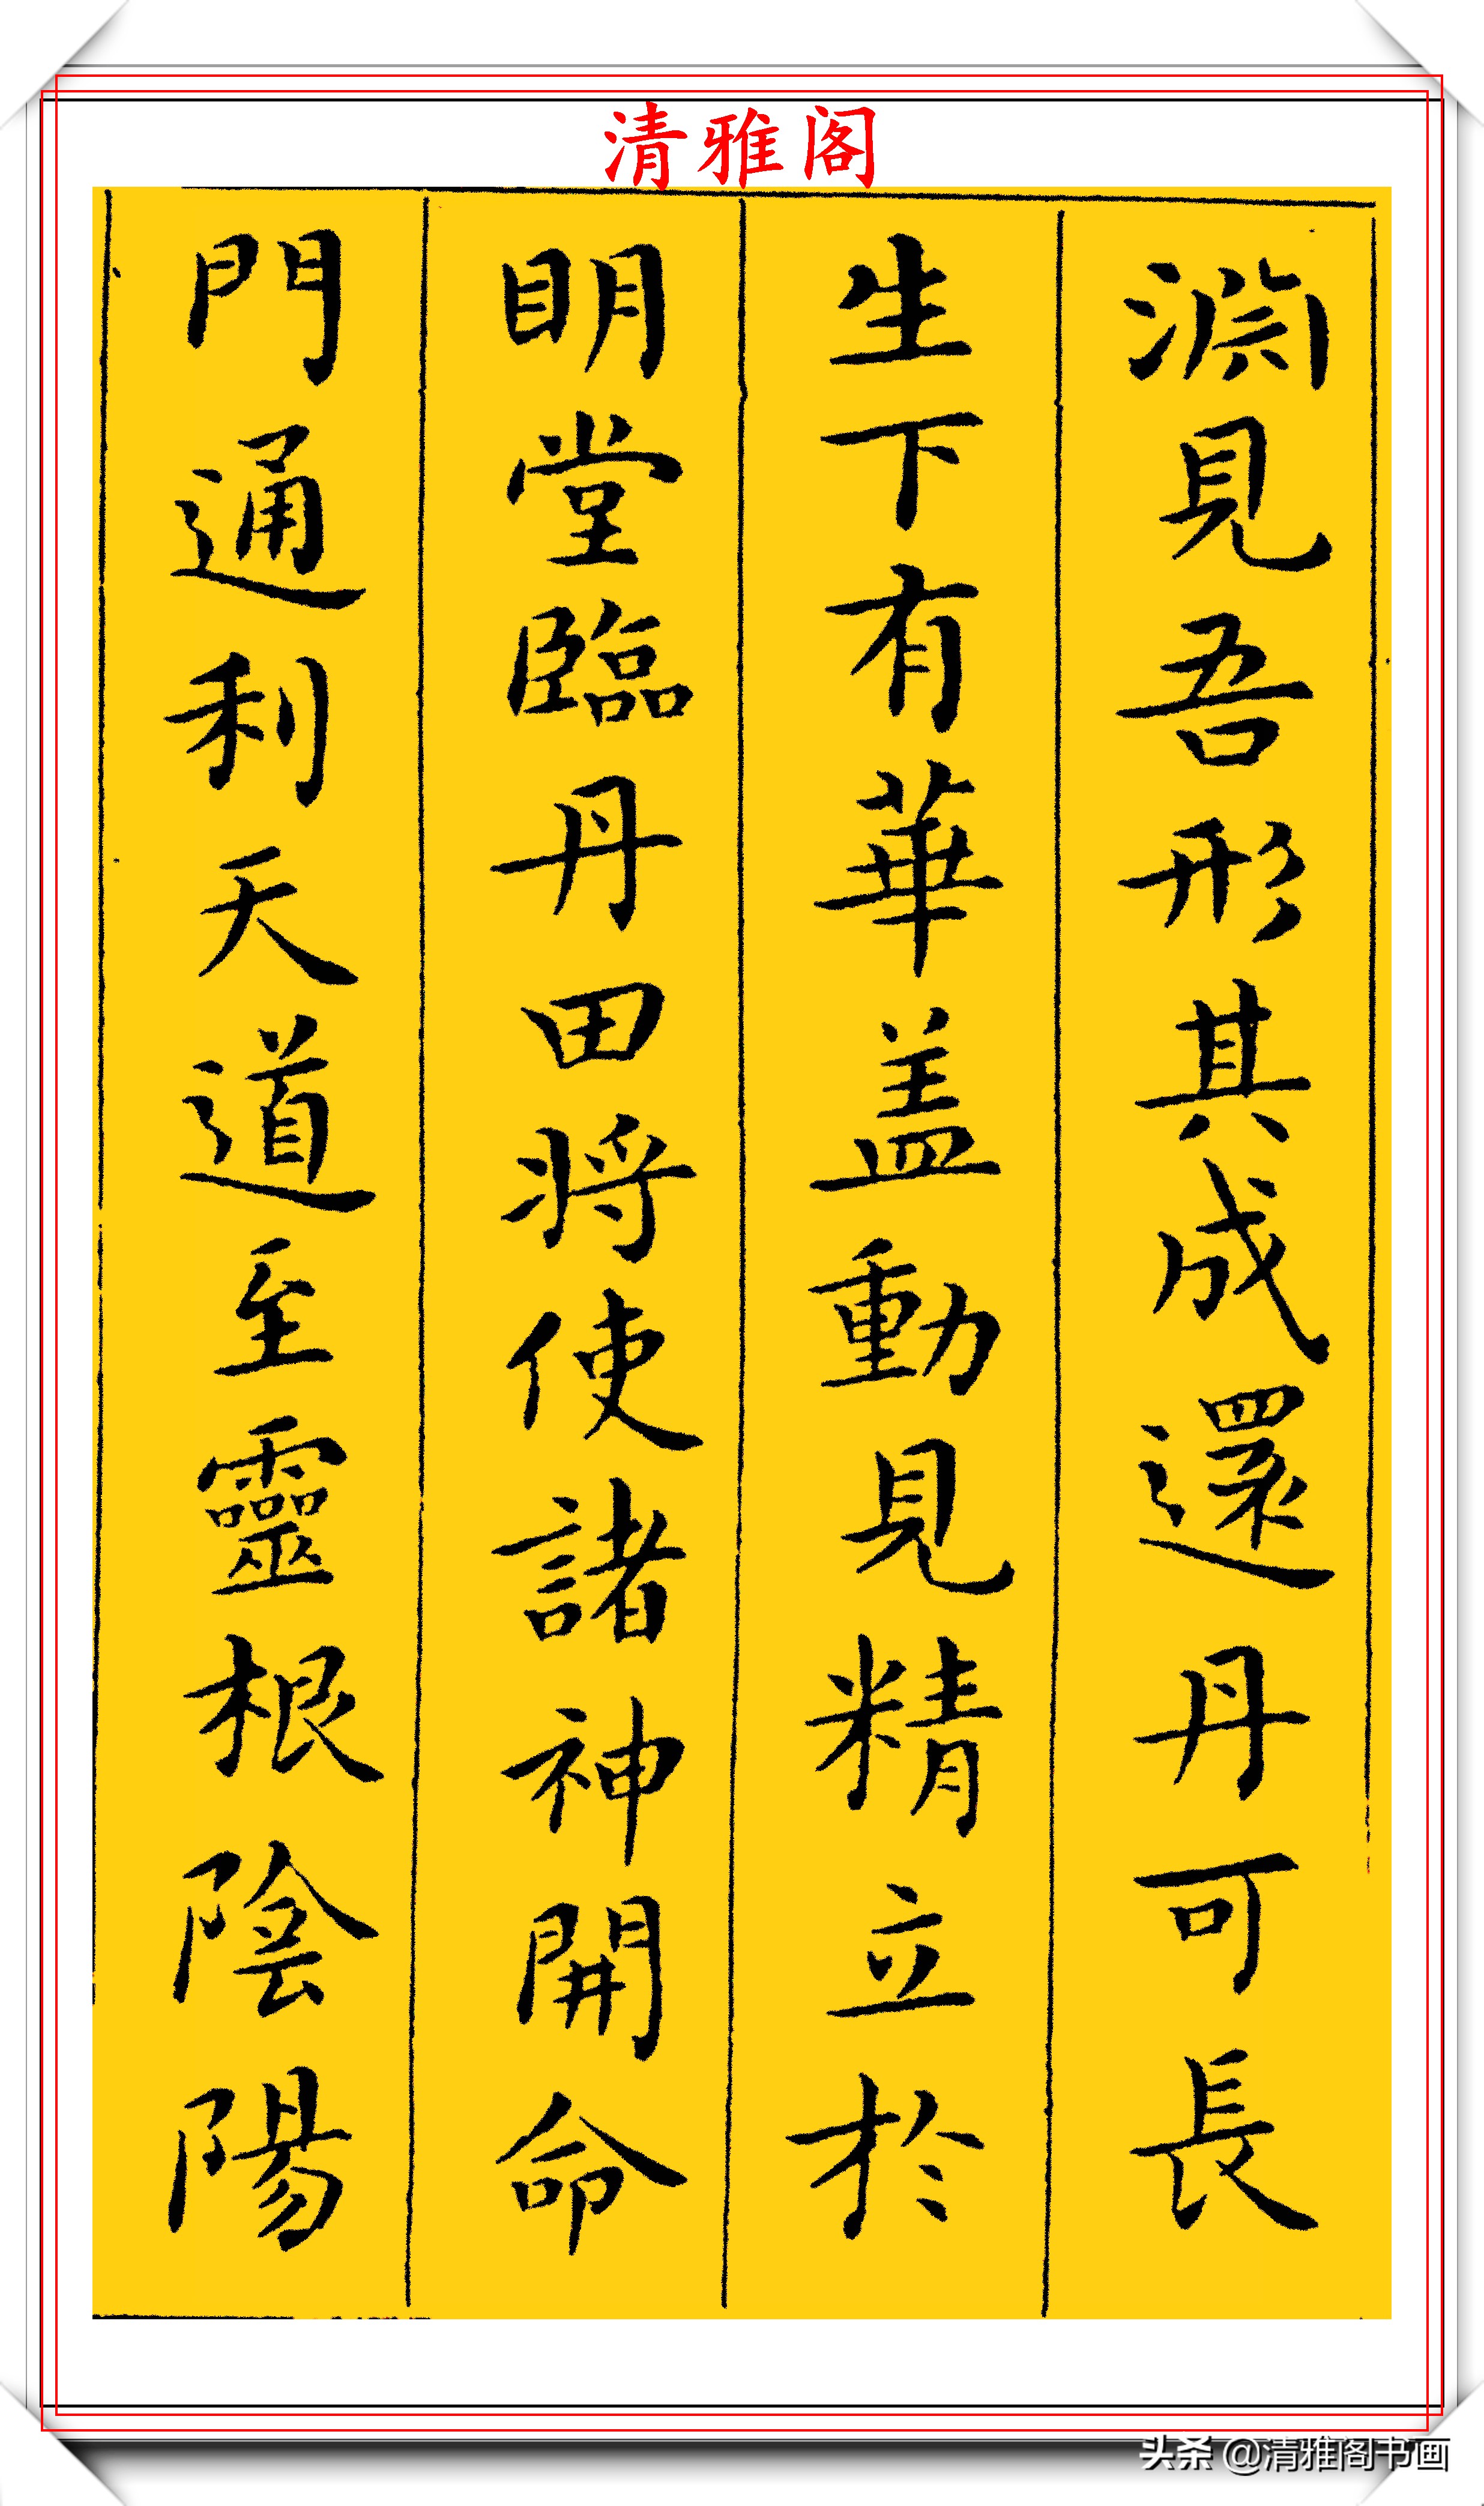 清雅阁
淵見吾形其成還丹可長
生下有華盖動見精立於
明堂臨丹田将使諸神開命
門通利天道至靈根陰陽
头条 @清雅阁书画